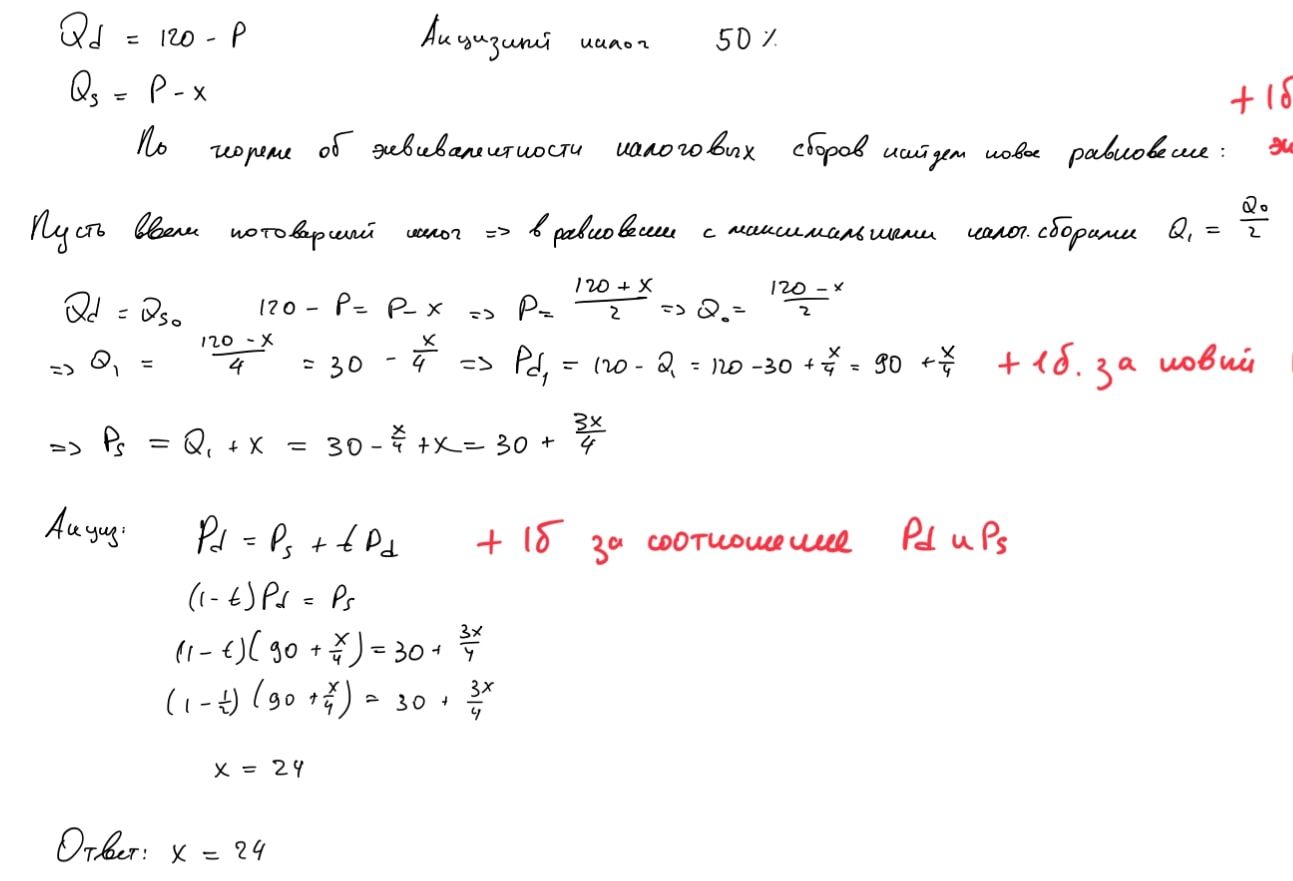 Qd = 120 - P Акцизный налог 50 %
Qs = P - x
+ 1б
По теореме об эквивалентности налоговых сборов найдем новое равновесие: эк
Пусть ввели потоварный налог => в равновесии с максимальными налог. сборами Q₁ = Q₀/2
Qd = Qs₀ 120 - P = P - x => P = (120 + x)/2 => Q₀ = (120 - x)/2
=> Q₁ = (120 - x)/4 = 30 - x/4 => Pd₁ = 120 - Q₁ = 120 - 30 + x/4 = 90 + x/4 + 1б. за новый
=> Ps = Q₁ + x = 30 - x/4 + x = 30 + 3x/4
Акциз: Pd = Ps + t Pd + 1б за соотношение Pd и Ps
(1 - t) Pd = Ps
(1 - t)(90 + x/4) = 30 + 3x/4
(1 - 1/2)(90 + x/4) = 30 + 3x/4
x = 24
Ответ: x = 24